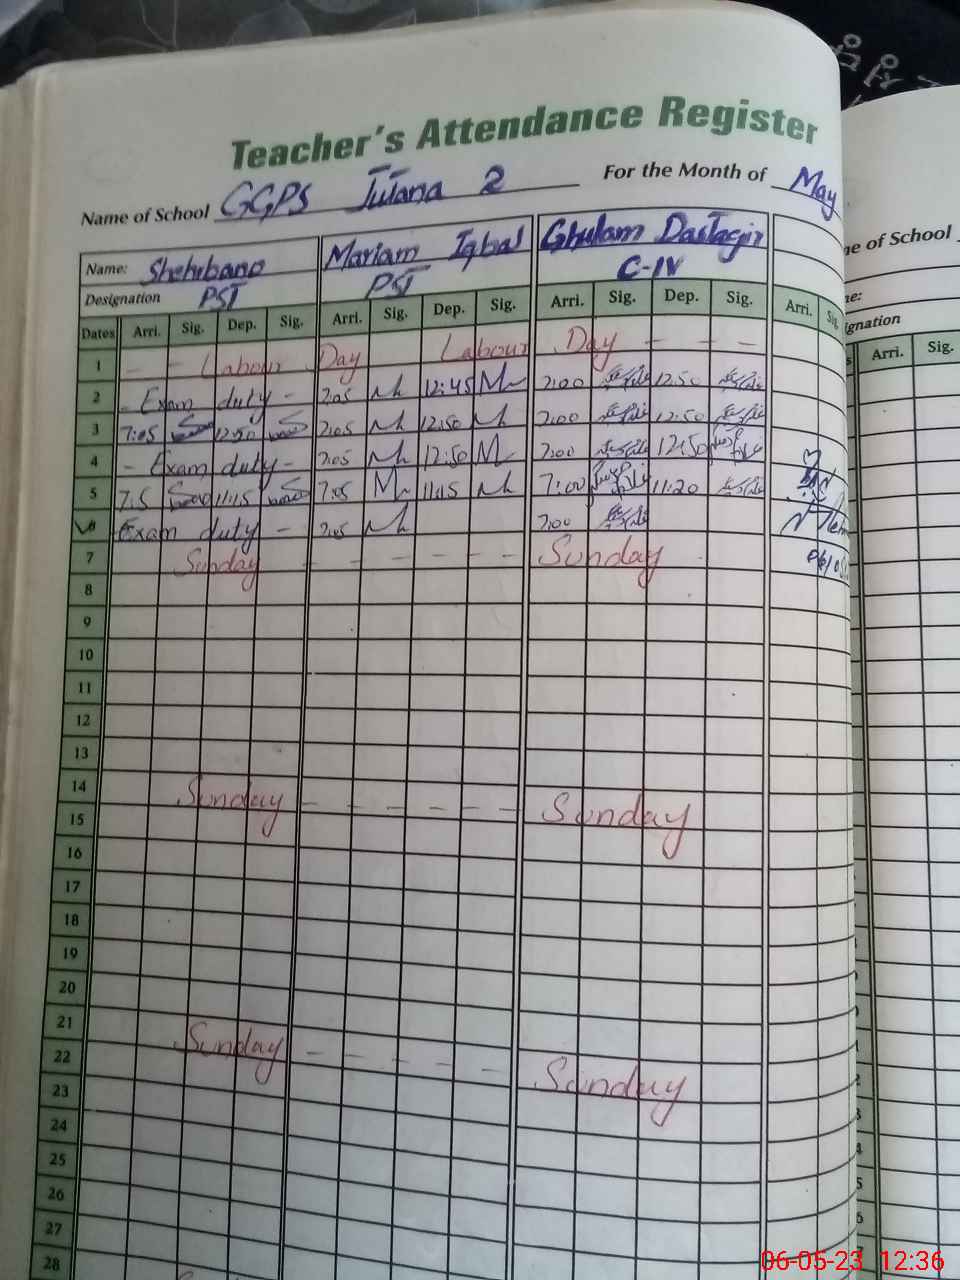 Teacher's Attendance Register
Name of School GGPS Jutana 2 For the Month of May
Name: Shehrbano Mariam Iqbal Ghulam Dastagir
Designation PST PST C-IV
Dates Arri. Sig. Dep. Sig. Arri. Sig. Dep. Sig. Arri. Sig. Dep. Sig. Arri. Sig.
1 - - Labour Day Labour Day - - -
2 - Exam duty - 7:05 12:45 7:00 12:50
3 7:05 12:50 7:05 12:50 7:00 12:50
4 - Exam duty - 7:05 12:50 7:00 12:50
5 7:5 11:15 7:05 11:15 7:00 11:20
6 Exam duty - 7:05 7:00
7 Sunday - - - - - Sunday
8
9
10
11
12
13
14 Sunday - - - - - - Sunday
15
16
17
18
19
20
21 Sunday - - - - - Sunday
22
23
24
25
26
27
28
me of School
me:
ignation
Arri. Sig.
06-05-23 12:36